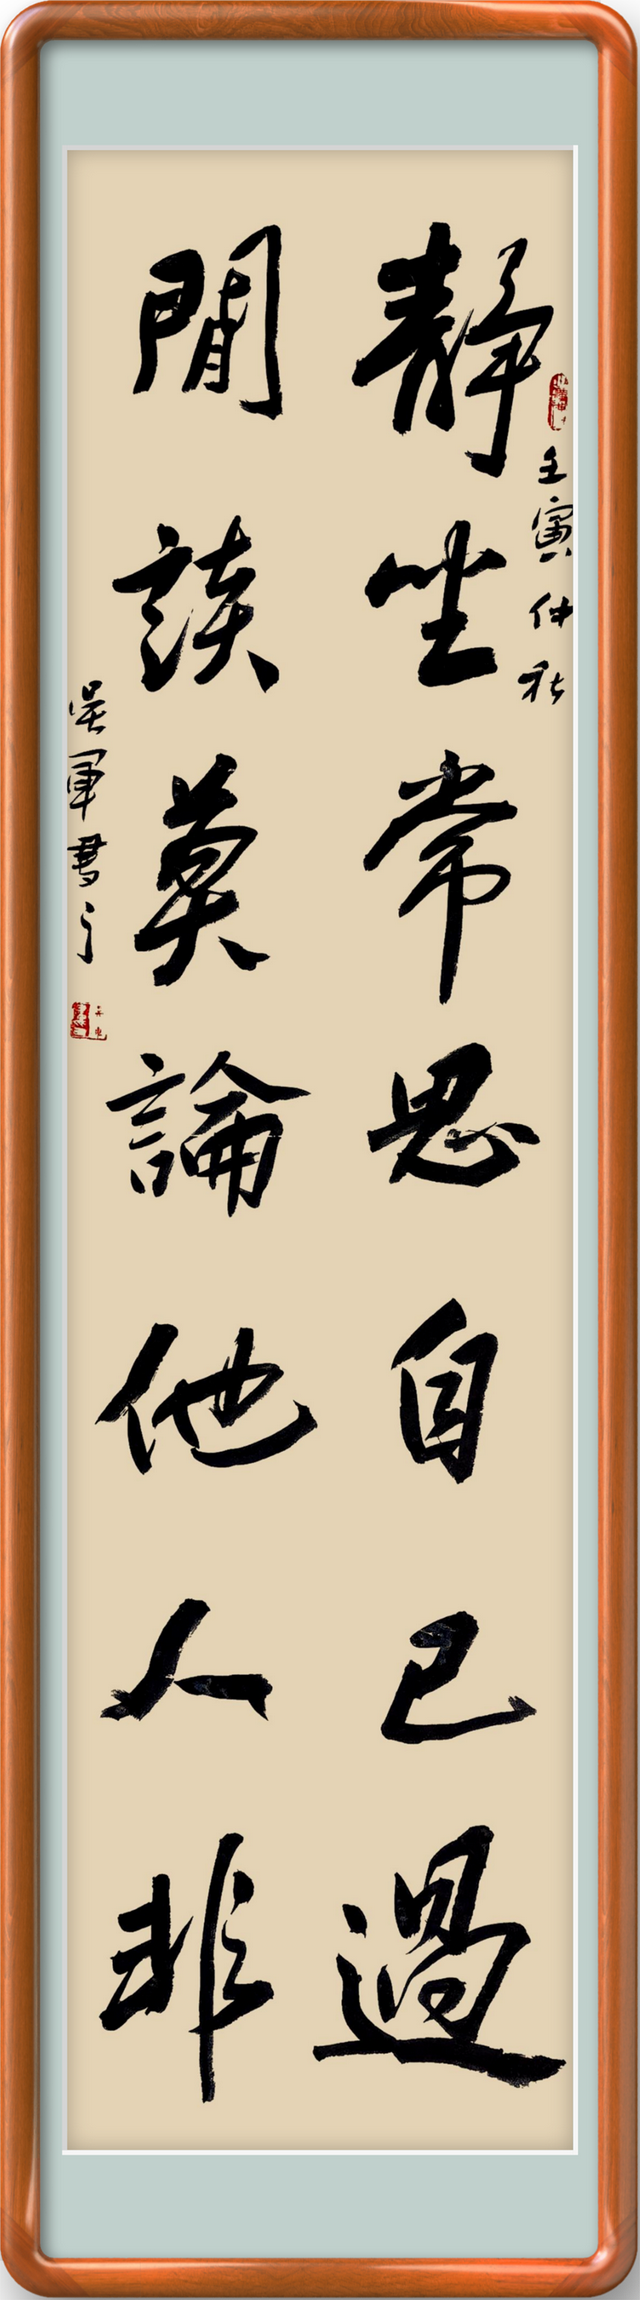 壬寅仲秋
靜坐常思自己過
閒談莫論他人非
吳軍書